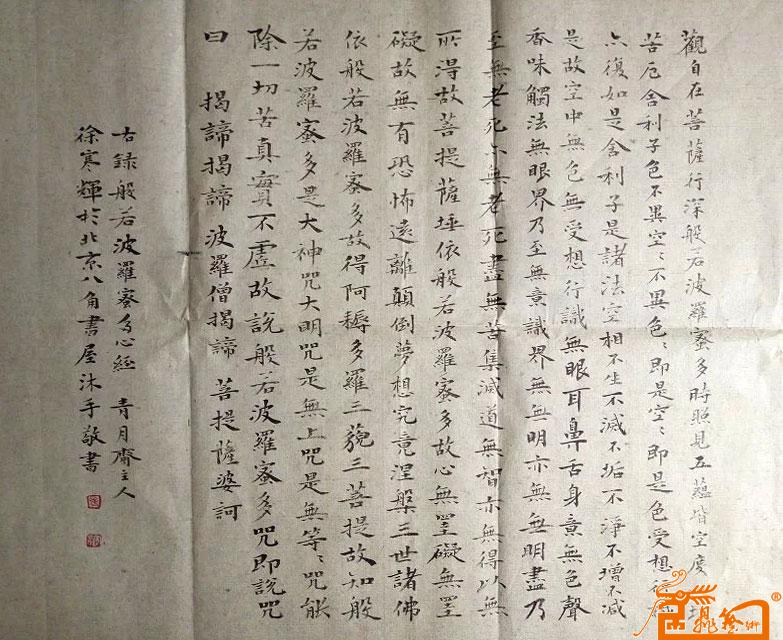 觀自在菩薩行深般若波羅蜜多時照見五蘊皆空度一切
苦厄舍利子色不異空〻不異色〻即是空〻即是色受想行
亦復如是舍利子是諸法空相不生不滅不垢不淨不增不減
是故空中無色無受想行識無眼耳鼻舌身意無色聲
香味觸法無眼界乃至無意識界無無明亦無無明盡乃
至無老死亦無老死盡無苦集滅道無智亦無得以無
所得故菩提薩埵依般若波羅蜜多故心無罣礙無罣
礙故無有恐怖遠離顛倒夢想究竟涅槃三世諸佛
依般若波羅蜜多故得阿耨多羅三藐三菩提故知般
若波羅蜜多是大神咒大明咒是無上咒是無等〻咒能
除一切苦真實不虛故說般若波羅蜜多咒即說咒
曰 揭諦揭諦 波羅僧揭諦 菩提薩婆訶
右錄般若波羅蜜多心經 青月齋主人
徐寒輝於北京八角書屋沐手敬書